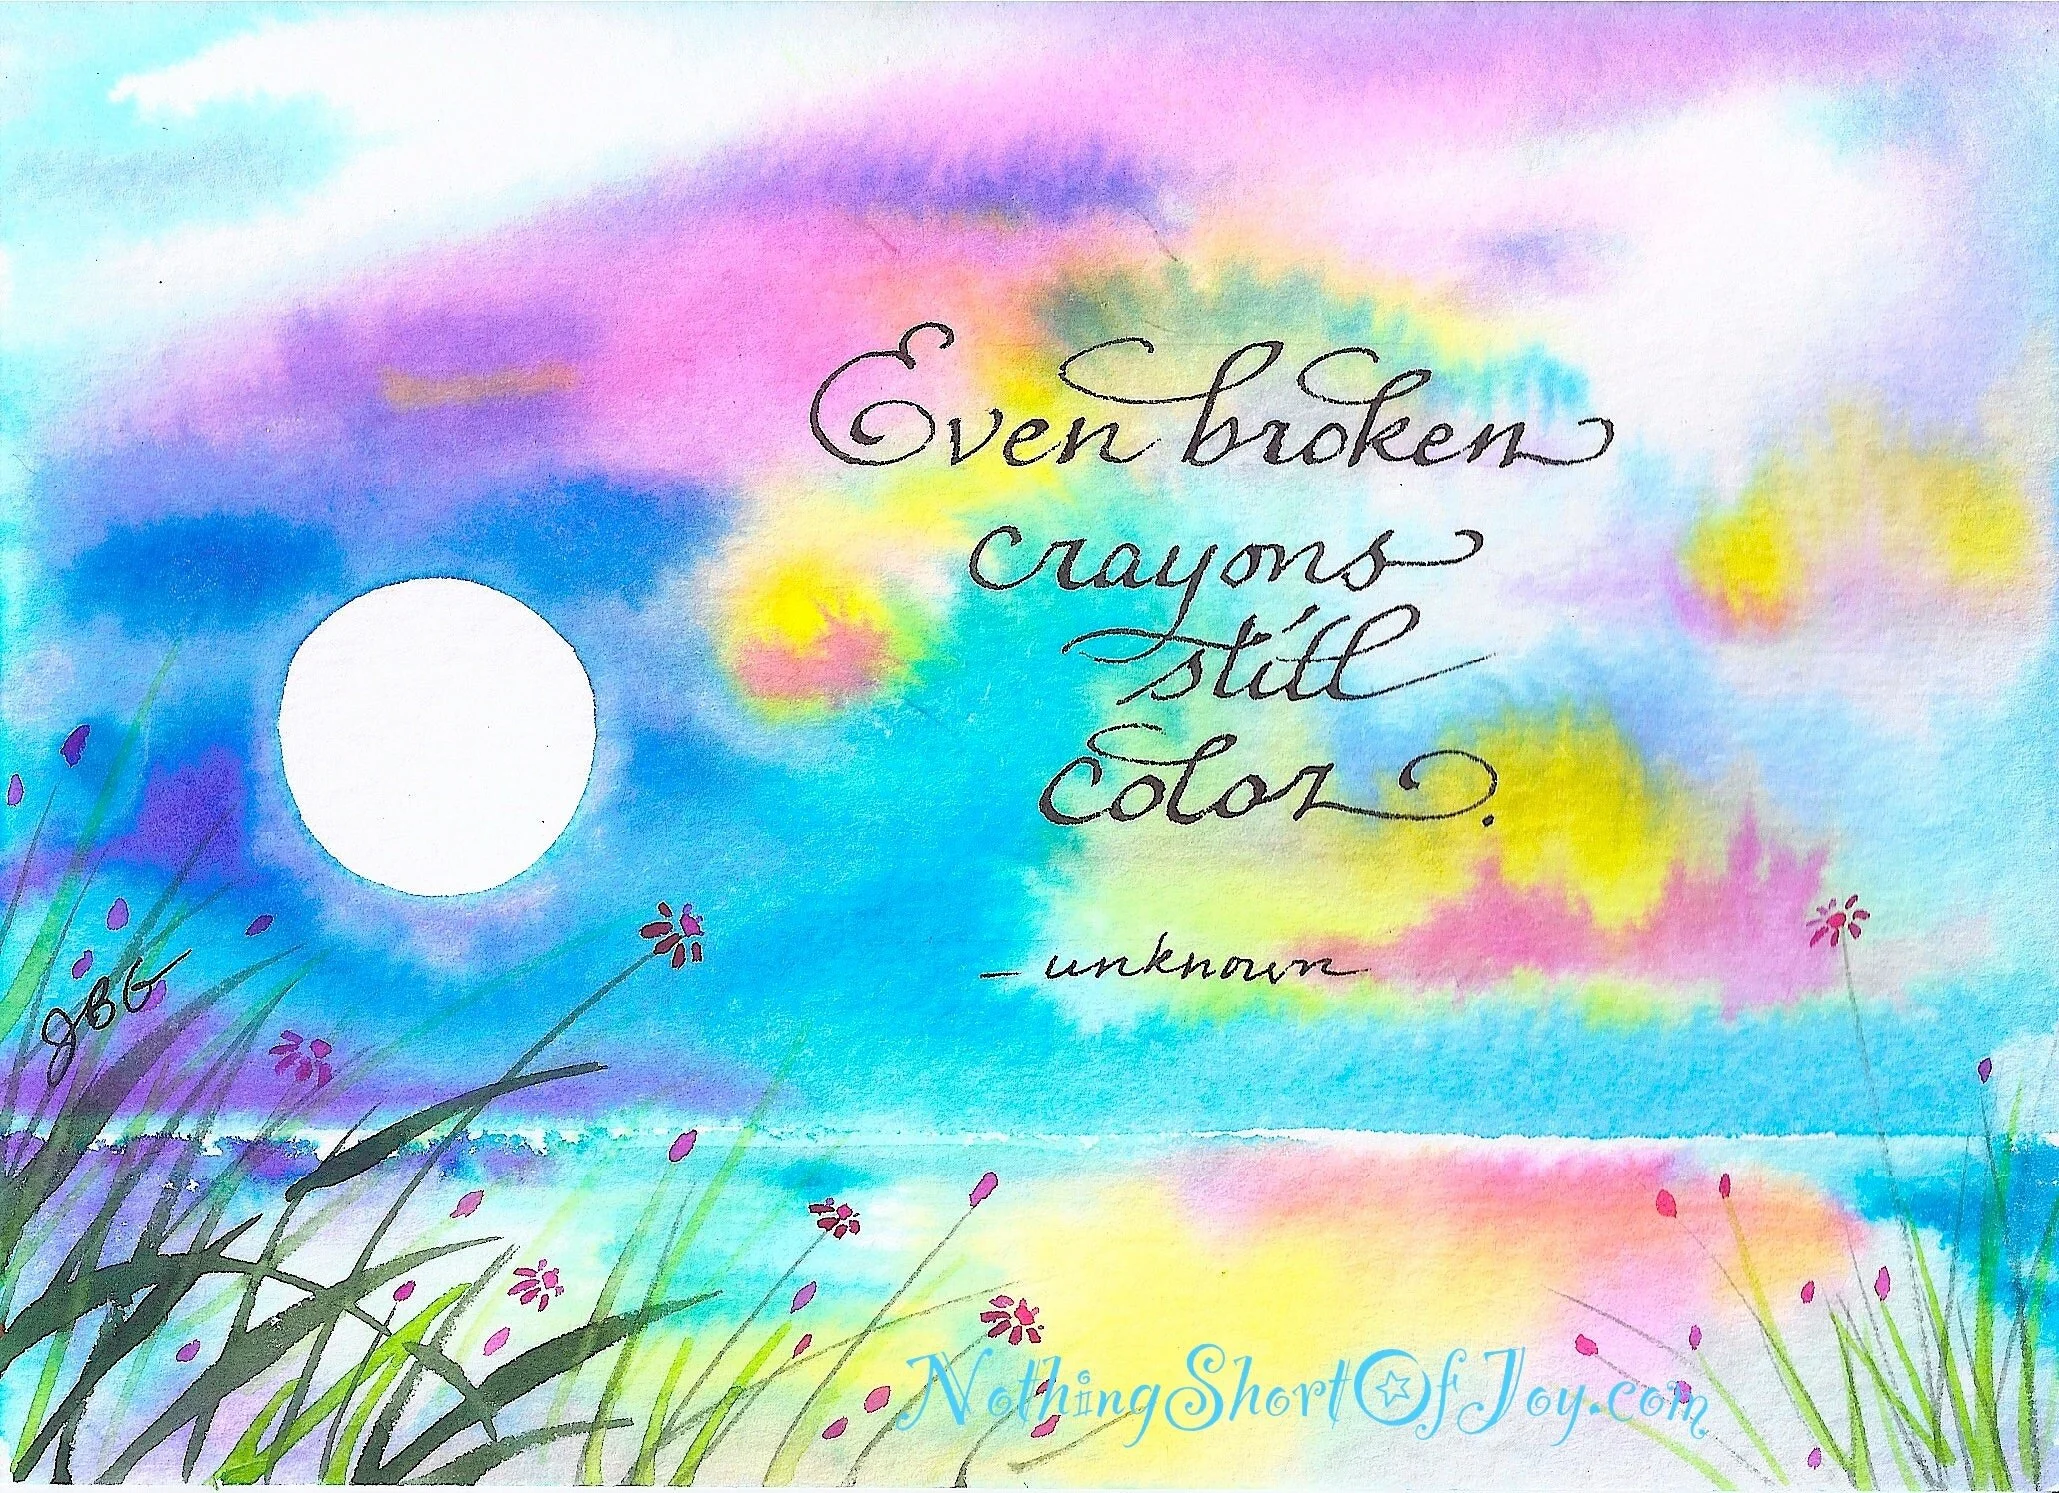 Even broken
crayons
still
color.
- unknown
JBG
NothingShortOfJoy.com